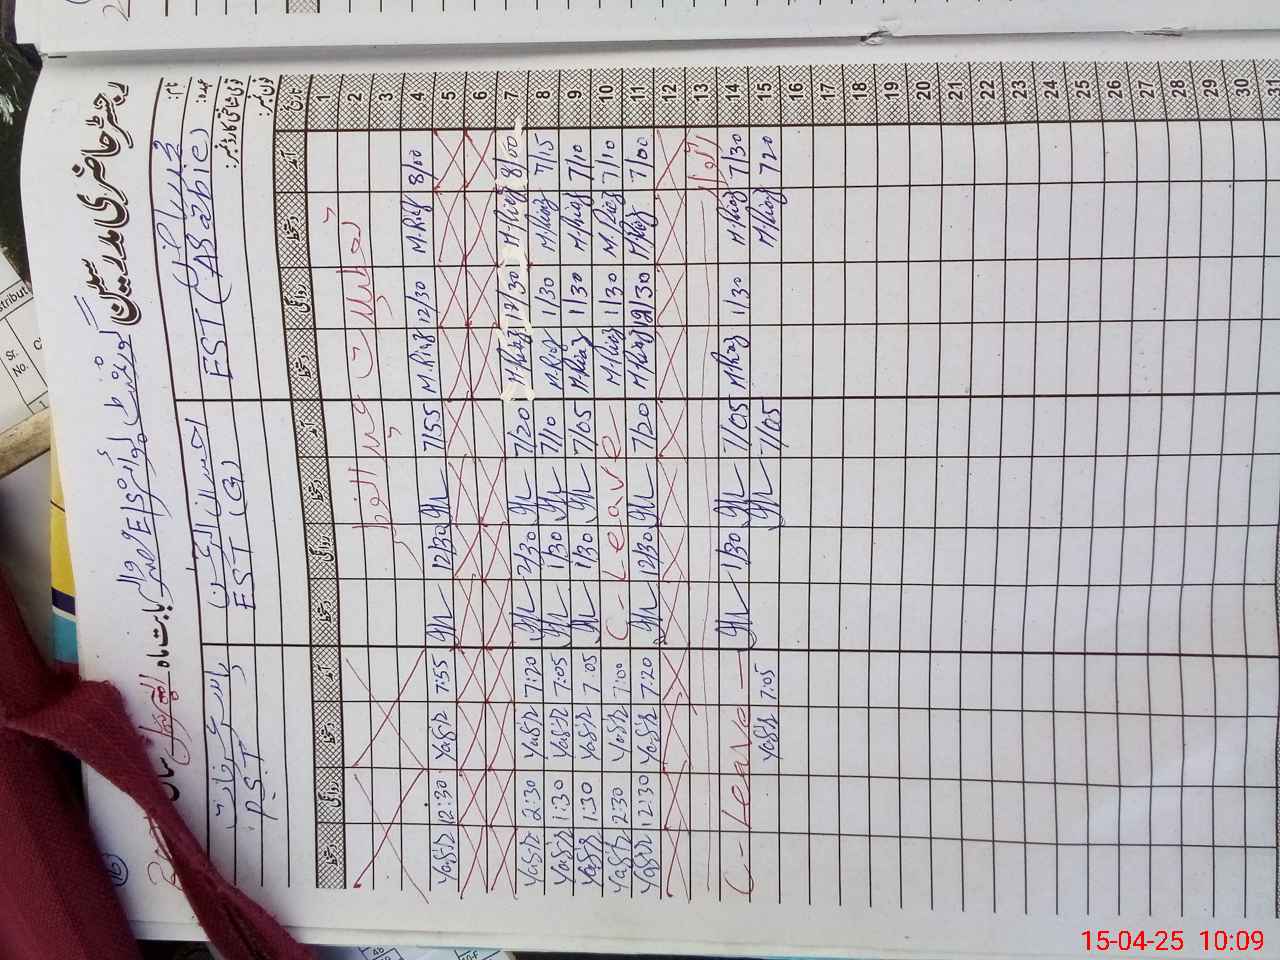 رجسٹر حاضری مدرسین
گورنمنٹ
بابت ماہ اپریل
نام:
عہدہ:
قومی شناختی کارڈ نمبر:
فون نمبر:
محمد ریاض
EST (Arabic)
احسان الرحمن
EST (G)
یاسر عرفات
P.S.T
تاریخ آمد دستخط روانگی دستخط آمد دستخط روانگی دستخط آمد دستخط روانگی دستخط
1
2
تعطیلات عید الفطر
3
4 8/00 M.Riaz 12/30 M.Riaz 7/55 12/30 7:55 Yasir 12:30 Yasir
5
6
7 8/00 M.Riaz 12/30 M.Riaz 7/20 2/30 7:20 Yasir 2:30 Yasir
8 7/15 M.Riaz 1/30 M.Riaz 7/10 1/30 7:05 Yasir 1:30 Yasir
9 7/10 M.Riaz 1/30 M.Riaz 7/05 1/30 7:05 Yasir 1:30 Yasir
10 7/10 M.Riaz 1/30 M.Riaz C-Leave 7:00 Yasir 2:30 Yasir
11 7/00 M.Riaz 12/30 M.Riaz 7/20 12/30 7:20 Yasir 12:30 Yasir
12
13 اتوار
14 7/30 M.Riaz 1/30 M.Riaz 7/05 1/30 C-Leave
15 7/20 M.Riaz 7/05 7:05 Yasir
16
17
18
19
20
21
22
23
24
25
26
27
28
29
30
31
Sr. No.
15-04-25 10:09